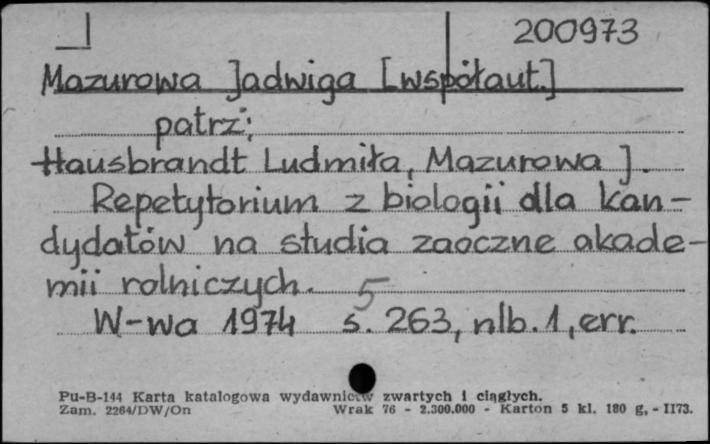 200973
Mazurowa Jadwiga [współaut.]
patrz:
Hausbrandt Ludmiła, Mazurowa J.
Repetytorium z biologii dla kan-
dydatów na studia zaoczne akade-
mii rolniczych. 5
W-wa 1974 s. 263, nlb. 1, err.
Pu-B-144 Karta katalogowa wydawnictw zwartych i ciągłych.
Zam. 2264/DW/On Wrak 76 - 2.300.000 - Karton 5 kl. 180 g, - II73.